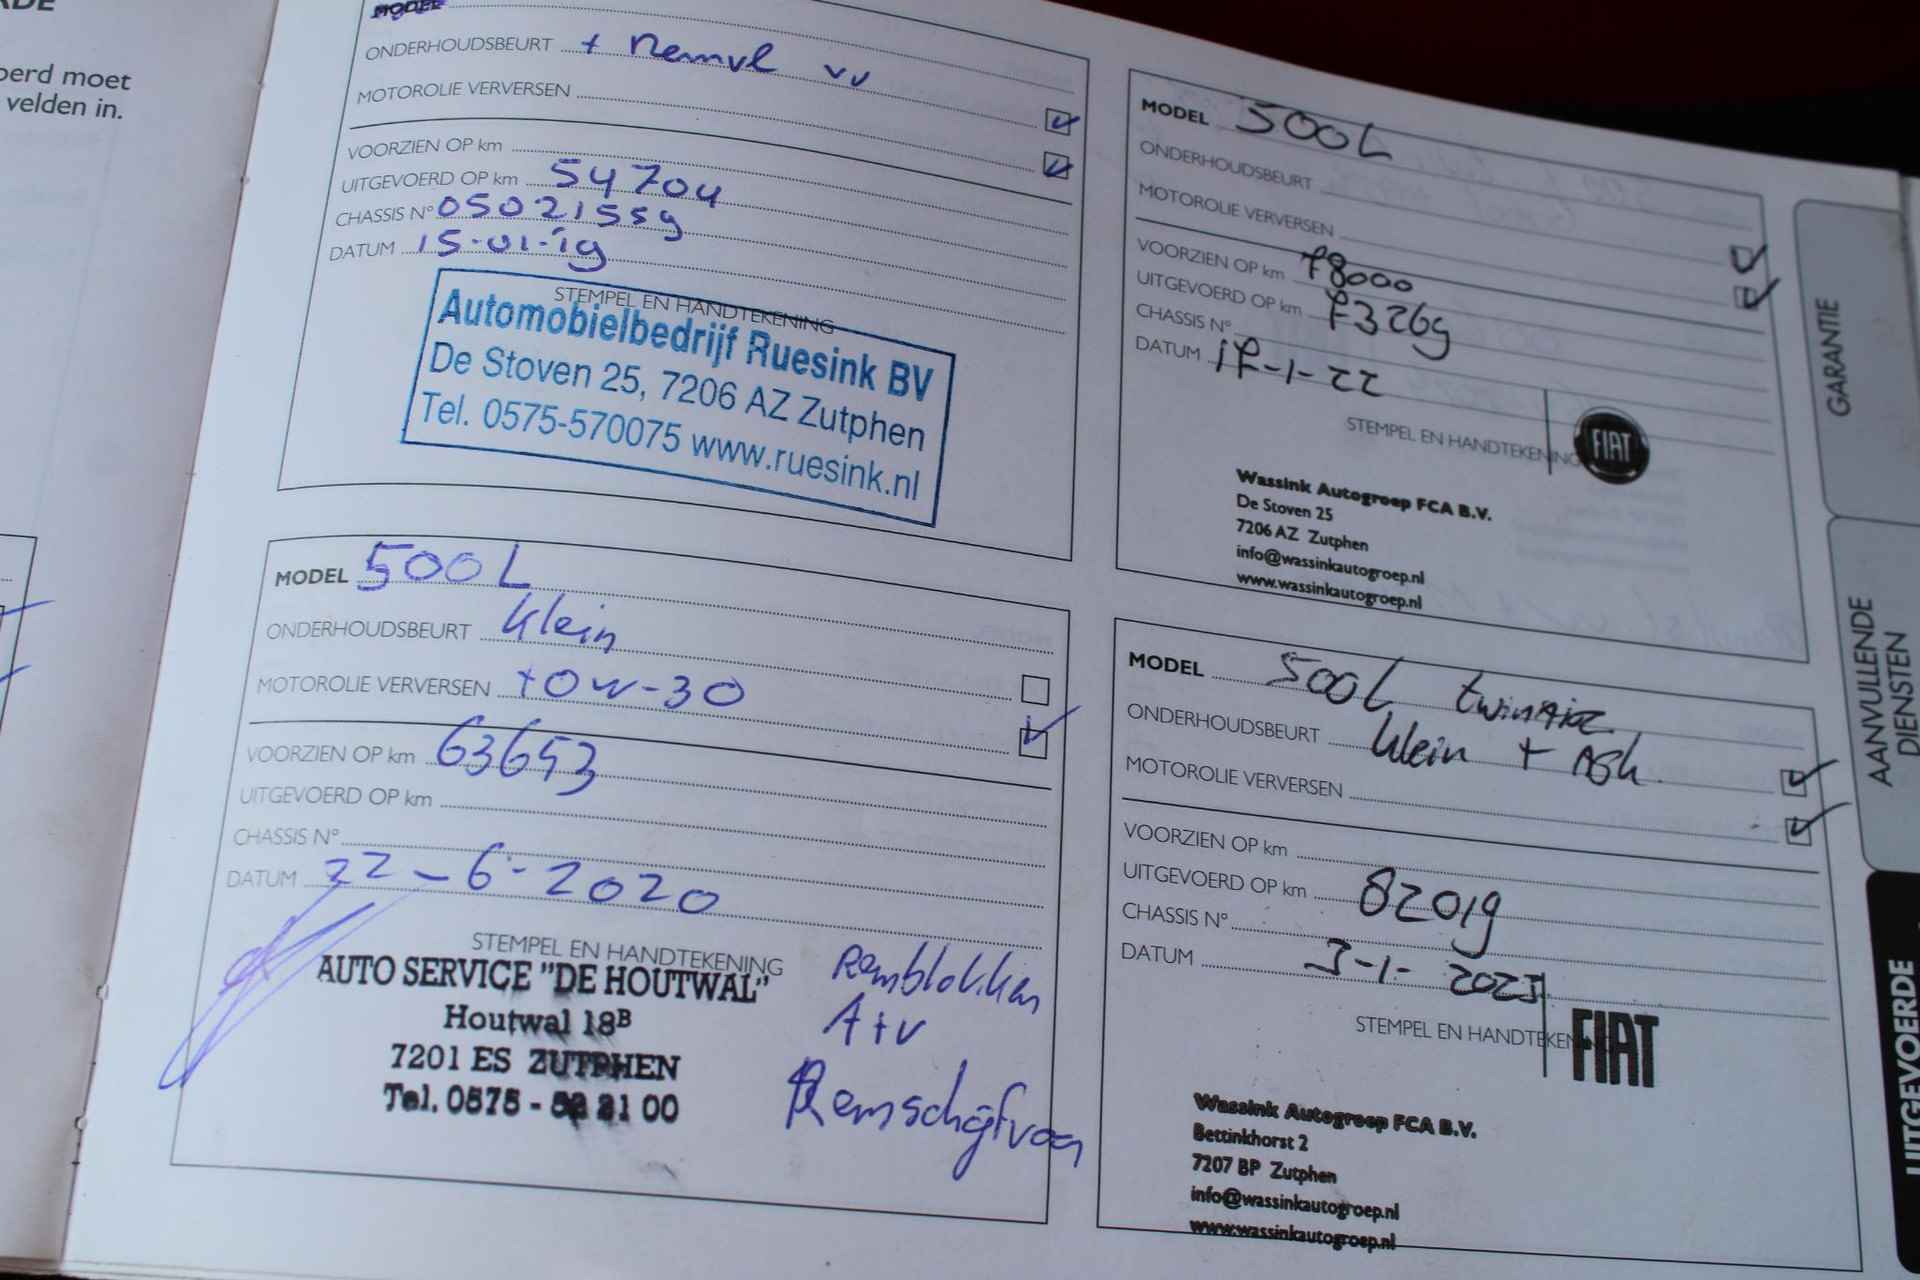 RDE
oerd moet
velden in.
MODEL
ONDERHOUDSBEURT + Remvl vv
MOTOROLIE VERVERSEN
VOORZIEN OP km
UITGEVOERD OP km 54704
CHASSIS N° 05021559
DATUM 15-01-19
STEMPEL EN HANDTEKENING
Automobielbedrijf Ruesink BV
De Stoven 25, 7206 AZ Zutphen
Tel. 0575-570075 www.ruesink.nl
MODEL 500L
ONDERHOUDSBEURT Klein
MOTOROLIE VERVERSEN +0W-30
VOORZIEN OP km 63653
UITGEVOERD OP km
CHASSIS N°
DATUM 22-6-2020
STEMPEL EN HANDTEKENING
AUTO SERVICE "DE HOUTWAL"
Houtwal 18B
7201 ES ZUTPHEN
Tel. 0575 - 21 00
Remblokken
A+V
Remschijf voor
MODEL 500L
ONDERHOUDSBEURT
MOTOROLIE VERVERSEN
VOORZIEN OP km 78000
UITGEVOERD OP km 73269
CHASSIS N°
DATUM 17-1-22
STEMPEL EN HANDTEKENING
FIAT
Wassink Autogroep FCA B.V.
De Stoven 25
7206 AZ Zutphen
info@wassinkautogroep.nl
www.wassinkautogroep.nl
MODEL 500L twinair
ONDERHOUDSBEURT Klein + Ask
MOTOROLIE VERVERSEN
VOORZIEN OP km
UITGEVOERD OP km 82019
CHASSIS N°
DATUM 3-1-2023
STEMPEL EN HANDTEKENING
FIAT
Wassink Autogroep FCA B.V.
Bettinkhorst 2
7207 BP Zutphen
info@wassinkautogroep.nl
www.wassinkautogroep.nl
GARANTIE
AANVULLENDE
DIENSTEN
UITGEVOERDE